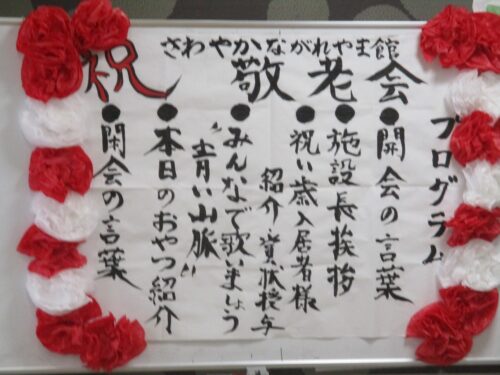 さわやかながれやま館
祝 敬老会
プログラム
●開会の言葉
●施設長挨拶
●祝い歳入居者様
紹介・賞状授与
●みんなで歌いましょう
“青い山脈”
●本日のおやつ紹介
●閉会の言葉